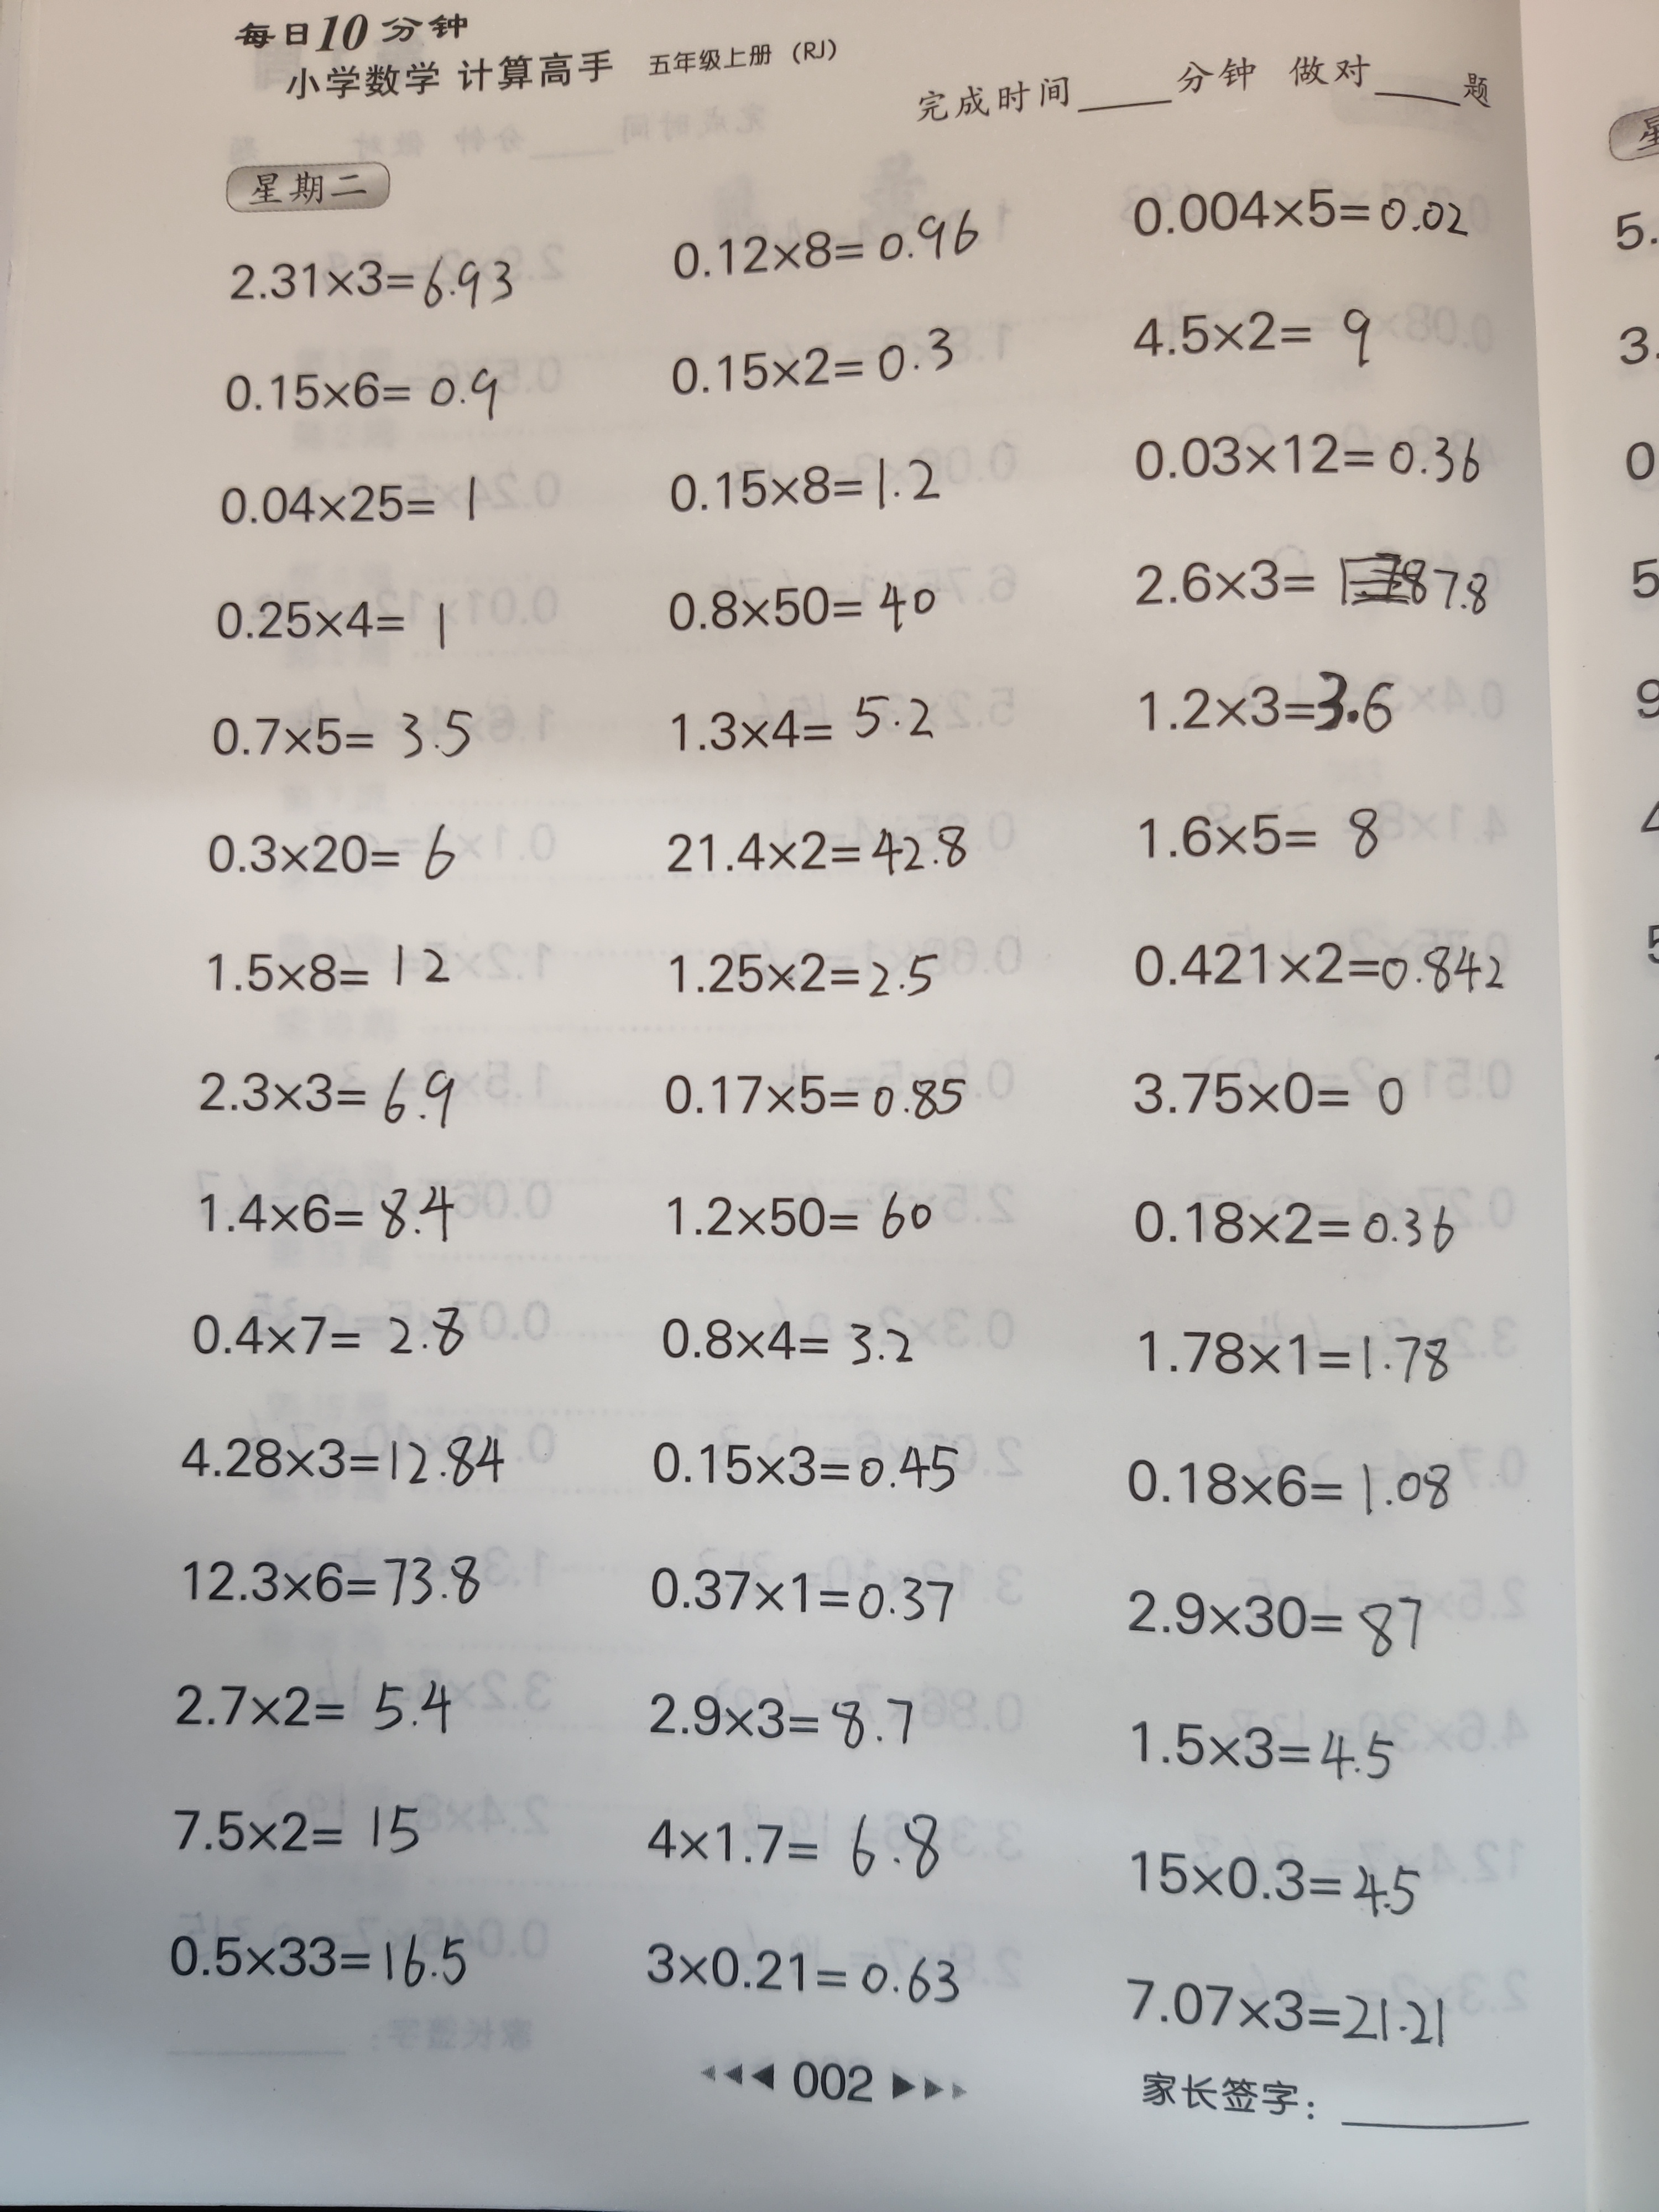 每日10分钟
小学数学 计算高手 五年级上册 (RJ)
完成时间____分钟 做对____题
星期二
2.31×3=6.93
0.15×6=0.9
0.04×25=1
0.25×4=1
0.7×5=3.5
0.3×20=6
1.5×8=12
2.3×3=6.9
1.4×6=8.4
0.4×7=2.8
4.28×3=12.84
12.3×6=73.8
2.7×2=5.4
7.5×2=15
0.5×33=16.5
0.12×8=0.96
0.15×2=0.3
0.15×8=1.2
0.8×50=40
1.3×4=5.2
21.4×2=42.8
1.25×2=2.5
0.17×5=0.85
1.2×50=60
0.8×4=3.2
0.15×3=0.45
0.37×1=0.37
2.9×3=8.7
4×1.7=6.8
3×0.21=0.63
0.004×5=0.02
4.5×2=9
0.03×12=0.36
2.6×3=7.8
1.2×3=3.6
1.6×5=8
0.421×2=0.842
3.75×0=0
0.18×2=0.36
1.78×1=1.78
0.18×6=1.08
2.9×30=87
1.5×3=4.5
15×0.3=4.5
7.07×3=21.21
002
家长签字：____